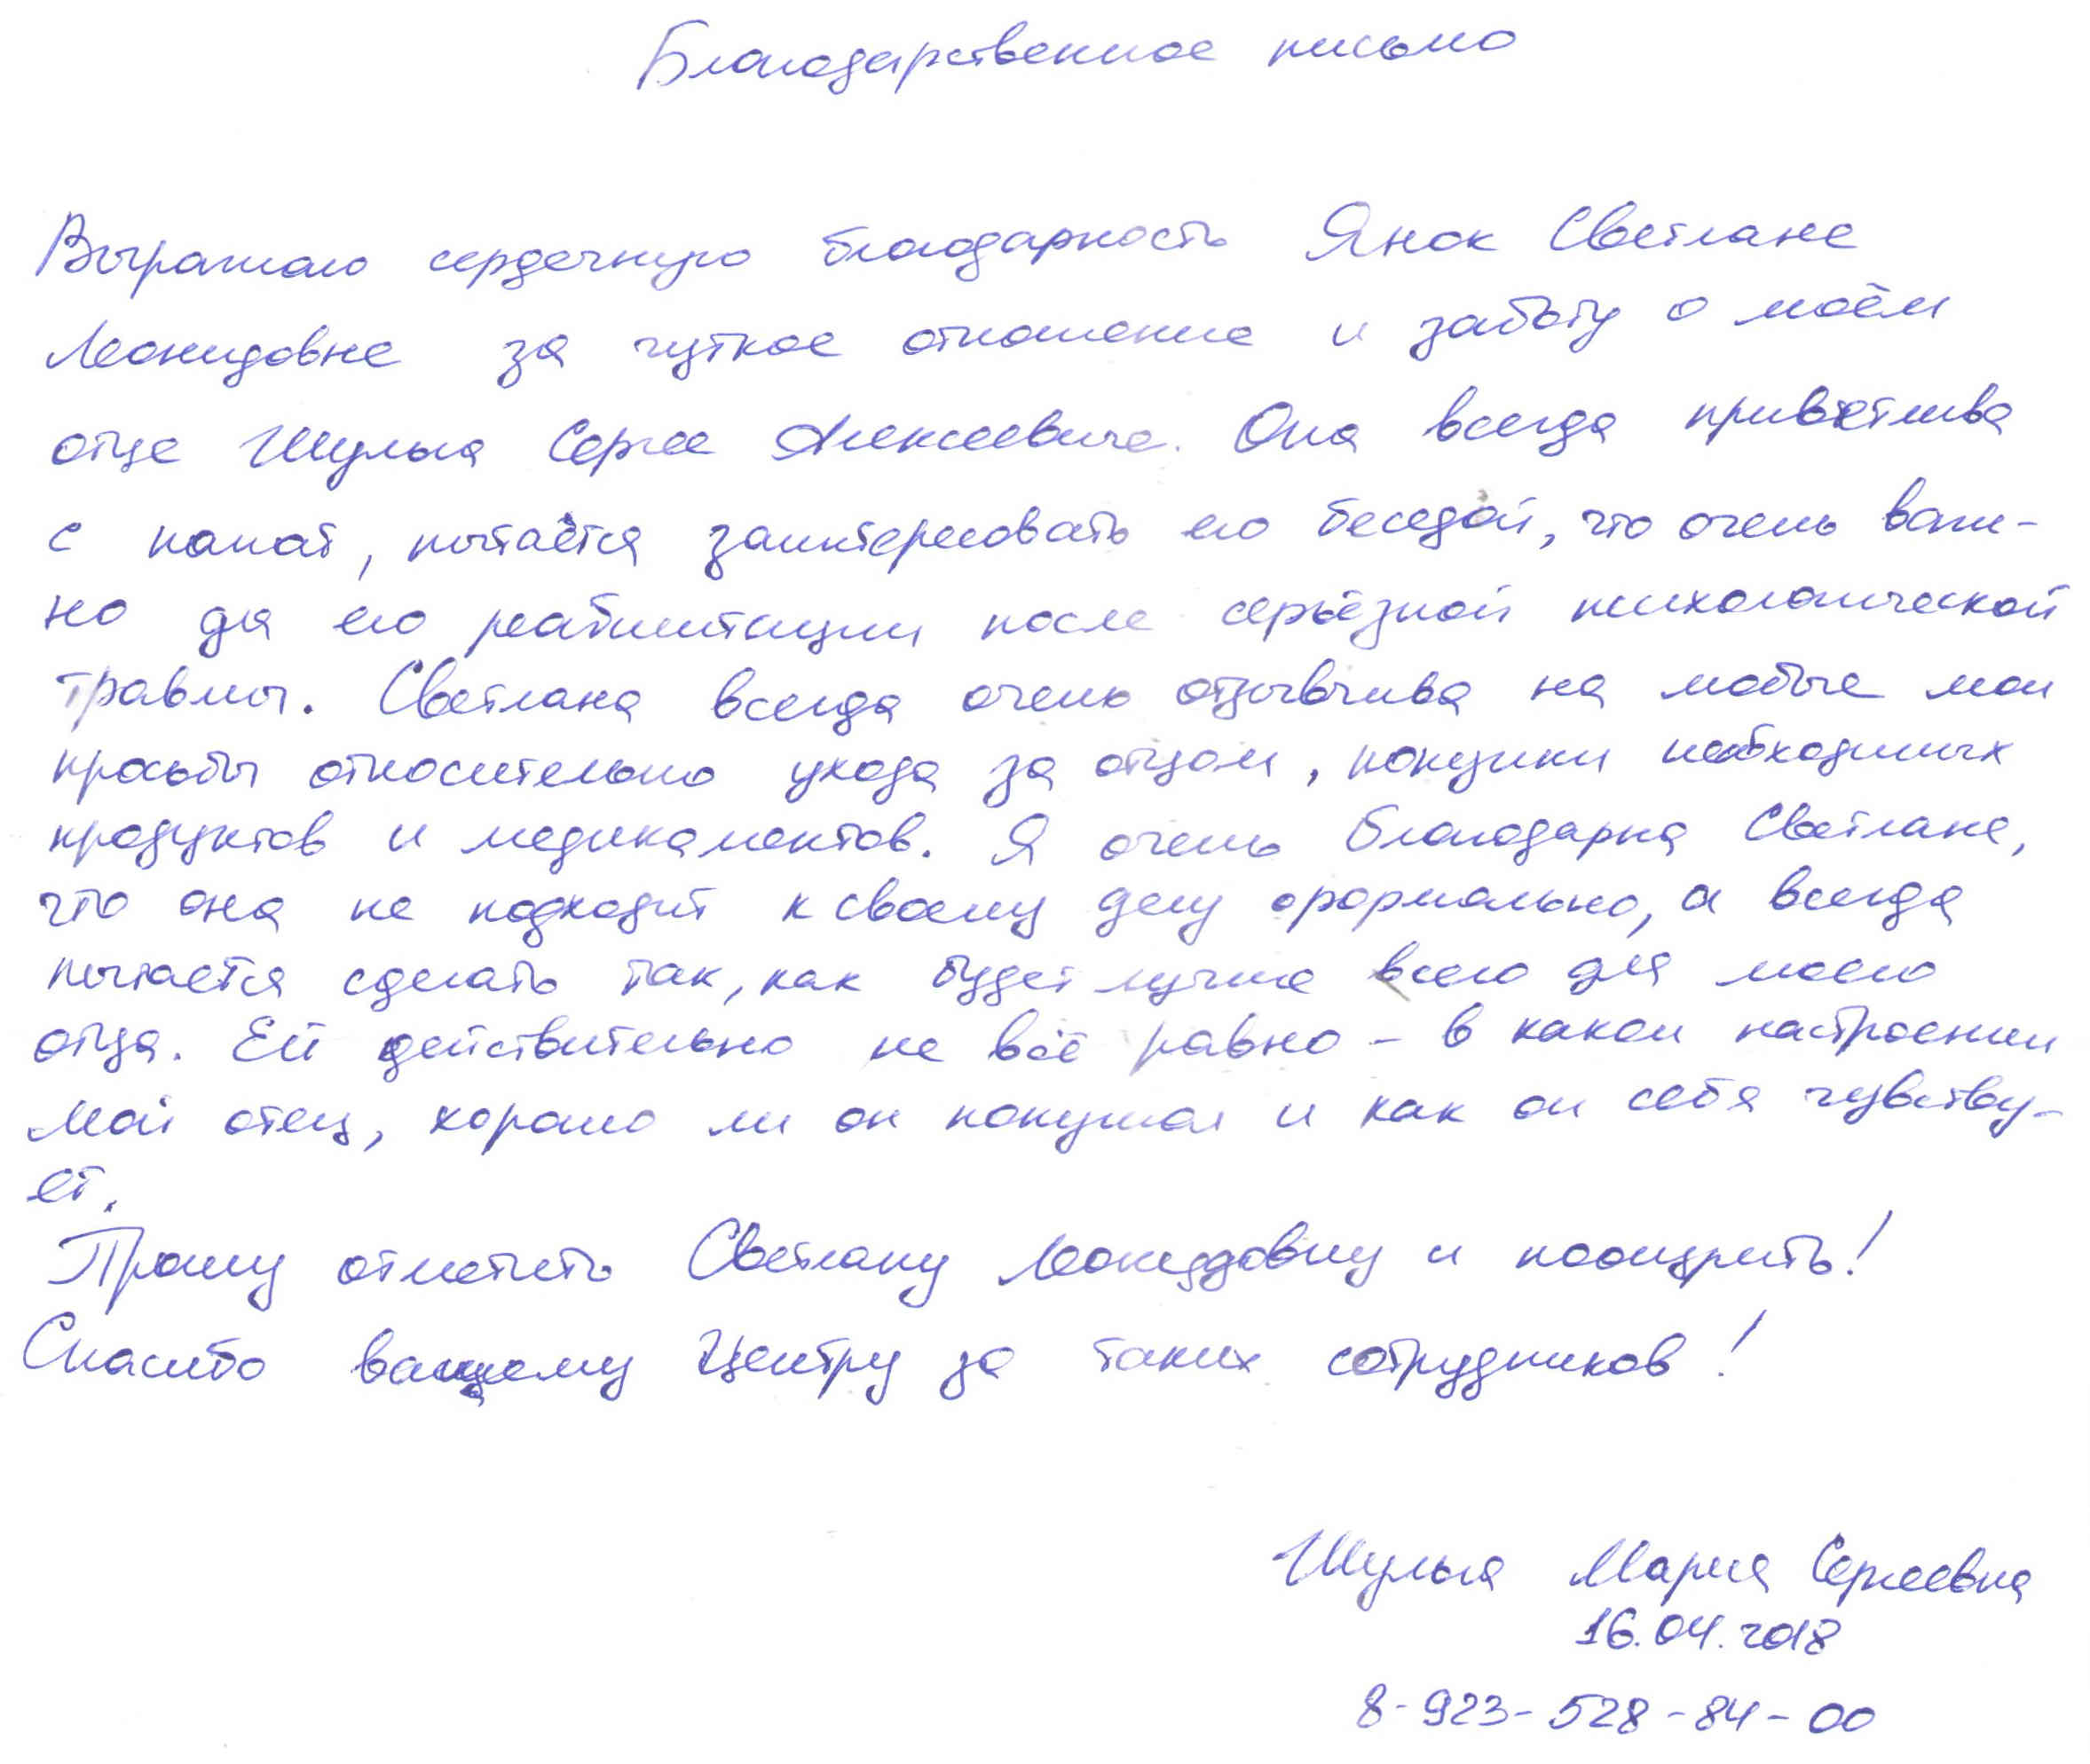 Благодарственное письмо
Выражаю сердечную благодарность Янок Светлане
Леонидовне за чуткое отношение и заботу о моём
отце Шульга Сергее Алексеевиче. Она всегда приветлива
с папой, пытаётся заинтересовать его беседой, что очень важ-
но для его реабилитации после серьёзной психологической
травмы. Светлана всегда очень отзывчива на любые мои
просьбы относительно ухода за отцом, покупки необходимых
продуктов и медикаментов. Я очень благодарна Светлане,
что она не подходит к своему делу формально, а всегда
пытается сделать так, как будет лучше всего для моего
отца. Ей действительно не всё равно – в каком настроении
мой отец, хорошо ли он покушал и как он себя чувству-
ет.
Прошу отметить Светлану Леонидовну и поощрить!
Спасибо вашему Центру за таких сотрудников!
Шульга Мария Сергеевна
16.04.2018
8-923-528-84-00